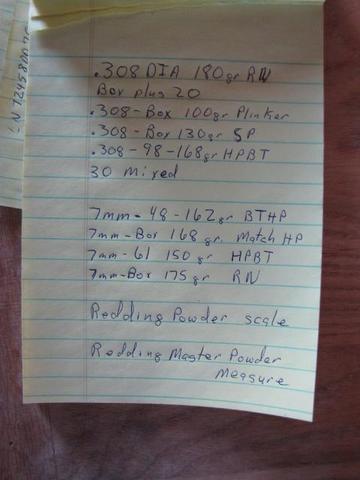 .308 DIA 180gr RN
Box plus 20
.308-Box 100gr Plinker
.308-Box 130gr SP
.308-98-168gr HPBT
30 Mixed
7mm-48-162gr BTHP
7mm-Box 168gr. Match HP
7mm-61 150gr HPBT
7mm-Box 175gr RN
Redding Powder scale
Redding Master Powder
Measure